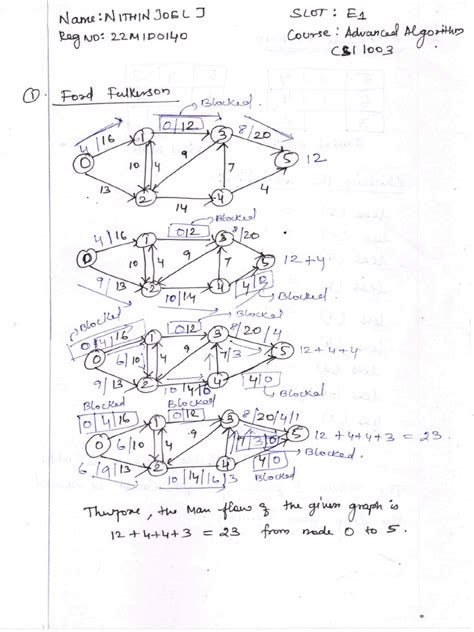 Name: NITHIN JOEL J
SLOT: E1
Reg NO: 22MID0140
Course: Advanced Algorithm
CSI 1003
① Ford Fulkerson
Blocked
4/16
0/12
8/20
0
1
3
10
4
9
7
5
12
13
2
14
4
4
Blocked
4/16
0/12
8/20
0
1
3
10
4
9
7
5
12+4
9/13
2
10/14
4
4/0
Blocked
Blocked
Blocked
0/4/16
0/12
8/20/4
0
1
3
6/10
4
9
7/3
5
12+4+4
9/13
2
10/14/0
4
4/0
Blocked
Blocked
Blocked
0/4/16
0/12
8/20/4/1
0
1
3
6/10
4
9
7/3/0
5
12+4+4+3 = 23.
Blocked
6/9/13
2
10/14/6/3
4
4/0
Blocked.
Therfore, the Max flow of the given graph is
12+4+4+3 = 23 from node 0 to 5.